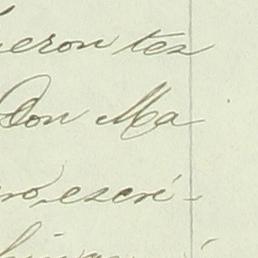 ieron tes
Don Ma
ro, escri-